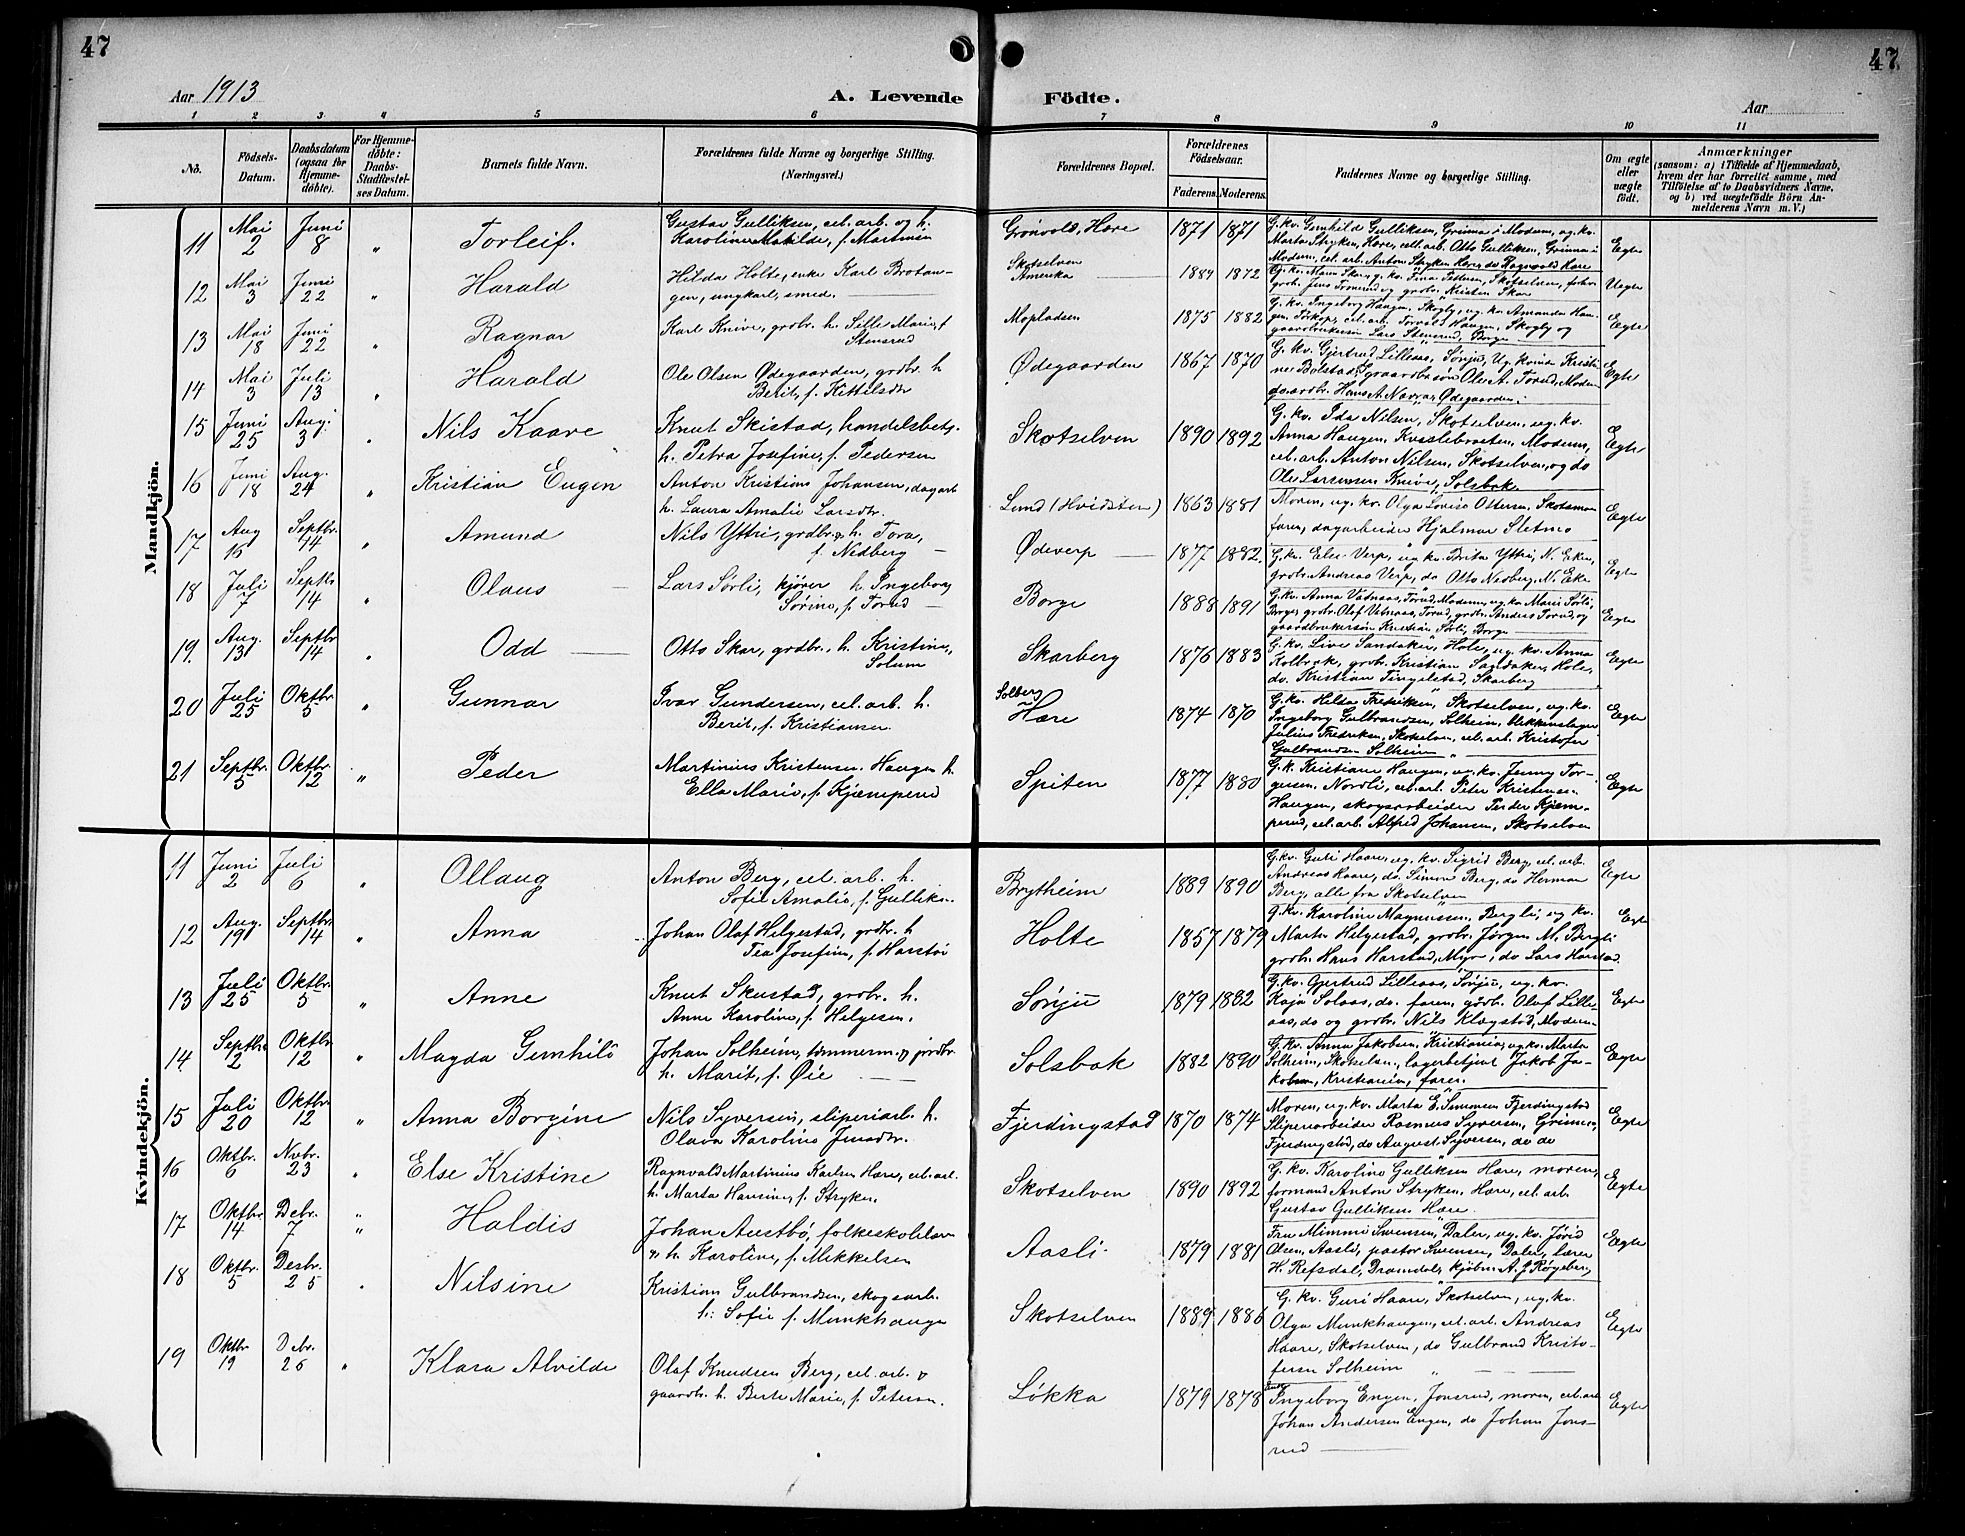 47
47.
Aar 1913
A. Levende Födte.
Aar
1 2 3 4 5 6 7 8 9 10 11
No. Födsels-Datum. Daabsdatum (ogsaa for Hjemmedøbte). For Hjemmedøbte: Daabs-Stadfæstelses Datum. Barnets fulde Navn. Forældrenes fulde Navne og borgerlige Stilling. (Næringsvei.) Forældrenes Bopæl. Forældrenes Födselsaar. Faderens. Moderens. Faddernes Navne og borgerlige Stilling. Om ægte eller uægte födt. Anmærkninger
(saasom: a) i Tilfælde af Hjemmedaab, hvem der har forrettet samme, med Tilföielse af to Daabsvidners Navne, og b) ved uægtefödte Börn Anmelderens Navn m. V.)
Mandkjön.
11 Mai 2 Juni 8 " Torleif. Gustav Gulliksen, cel. arb. og h. Karoline Matilde, f. Martinsen Grønvold, Hære 1871 1871 G. kv. Gunhild Gulliksen, Grinna i Modum, ug. kv. Marta Stryken, Hære, cell. arb. Otto Gulliksen, Grinna i Modum, cel. arb. Anton Stryken Hære, do Ragnvald Hære Egte
12 Mai 3 Juni 22 " Harald Hilda Holte, enke Karl Brotangen, ungkarl, smed. Skotselven Amerika 1884 1872 Kristen Skar Uegte
13 Mai 18 Juni 22 " Ragnar Karl Knive, grdbr. h. Sille Marie, f Stensrud Mopladsen 1875 1882 G. kv. Ingeborg Haugen, Skogly, ug. kv. Amanda Haugen, cel. arb. Torvald Haugen, Skogly og gaardbrukersøn Lars Stensrud, Borge Egte
14 Mai 3 Juli 13 " Harald Ole Olsen Ødegaarden, grdbr. h Berit, f. Kittilsdtr Ødegaarden 1867 1870 G. kv. Gjertrud Lilleaas, Sønju, Ug. kvinde Kristine Bolstad, Ole A. Torud, Modum gaardbr. Hans A. Ødegaarden. Egte
15 Juni 25 Aug. 3 " Nils Kaare Knut Skistad, handelsbetj. h. Petra Josefine, f. Pedersen Skotselven 1890 1892 G. kv. Ida Nilsen, Skotselven, ug. kv. Anna Haugen, Modum, cel. arb. Anton Nilsen, Skotselven, og do Ole Larsensen Knive, Solsbok. Egte
16 Juni 18 Aug. 24 " Kristian Eugen Anton Kristians Johansen, dagarb h. Laura Amalie Larsdtr. Lund (Hvidsten) 1863 1881 Moren, ug. kv. Olga Lovise Ottersen, Skotsmoen faren, dagarbeider Hjalmar Sletmo Egte
17 Aug 16 Septbr. 14 " Amund Nils Yttri, grdbr. h. Tora, f. Nedberg Ødeverp 1877 1882 G. kv. Else Verp, ug. kv. Brita Yttri, N. Eker, grdbr. Andreas Verp, do Otto Nedberg, N. Eker Egte
18 Juli 7 Septbr 14 " Olaus Lars Sørli, kjører h. Ingeborg Sørine, f. Torud Borge 1888 1891 G. kv. Anna Vatnaas, Torud, Modum, ug. kv Marie Sørli, Borge, grdbr. Olaf Vatnaas, Torud, grdbr. Anders Torud, og gaardbrukersøn Kristian Sørli, Borge Egte
19. Aug. 13 Septbr 14 " Odd Otto Skar, grdbr., h. Kristine, Solum Skarberg 1876 1883 G. kv. Live Sandaker, Hole, ug. kv. Anna Kolbrek, grdbr. Kristian Sandaker, Hole, do. Kristian Tingelstad, Skarberg Egte
20 Juli 25 Oktbr 5 " Gunnar Ivar Gundersen, cel. arb. h. Berit, f. Kristiansen Solberg Hære 1874 1870 G. kv. Hilda Fredriksen, Skotselven, ug. kv. Ingeborg Gulbrandsen, Solheim, blikkenslager Julius Fredriksen, Skotselven, cel. arb. Kristofer Gulbrandsen Solheim Egte
21 Septbr. 5 Oktbr. 12 " Peder Martinius Kristensen Haugen h. Ella Marie, f. Kjæmperud Spiten 1877 1880 G. k. Kristiane Haugen, ug. kv. Jenny Torgersen, Nordli, cel. arb. Peter Kristensen Haugen, skogsarbeider Peder Kjæmperud, cel. arb. Alfred Johansen, Skotselven Egte
Kvindekjön.
11 Juni 2 Juli 6 " Ollaug Anton Berg, cel. arb. h. Sofie Amalie, f. Gulliksn. Brytheim 1889 1890 G. kv. Guri Haare, ug. kv. Sigrid Berg, cel. arb. Andreas Haare, do. Simon Berg, do Herman Berg, alle fra Skotselven Egte
12 Aug. 19 Septbr. 14 " Anna Johan Olaf Helgestad, grdbr. h Tea Josefine, f. Harstøi Holte 1857 1879 G. kv. Karoline Magnussen, Bergli, ug kv. Marta Helgestad, grdbr. Jørgen M. Bergli grdbr. Hans Harstad, Myr, do Lars Harstad. Egte
13 Juli 25 Oktbr. 5 " Anne Knut Skustad, grdbr. h. Anne Karoline, f. Helgesen. Sønju 1879 1882 G. kv. Gjertrud Lilleaas, Sønju, ug. kv. Kaja Solaas, do. faren, gdbr. Olaf Lilleaas, do og grdbr. Nils Klægstad, Modum Egte
14 Septbr. 2 Oktbr. 12 " Magda Gunhild Johan Solheim, tømmerm. & jordbr. h. Marit, f. Øie Solsbok 1882 1890 G. kv. Anna Jakobsen, Kristiania, ug. kv. Marta Solheim, Skotselven, lagerbetjent Jakob Jakobsen, Kristiania, faren. Egte
15 Juli 20 Oktbr. 12 " Anna Borgine Nils Syversen, sliperiarb. h. Olava Karoline Jensdtr. Fjerdingstad 1870 1874 Moren, ug. kv. Marta E. Simensen Fjerdingstad Sliperiarbeider Rasmus Syversen, Grinna, Fjerdingstad, do August Syversen, do do Egte
16 Oktbr. 6 Novbr. 23 " Else Kristine Ragnvald Martinius Karlsen Hære, cel. arb. h. Marta Hansine, f. Stryken. Skotselven 1890 1892 G. kv. Karoline Gulliksen Hære, moren, formand Anton Stryken, Hære, cel. arb. Gustav Gulliksen Hære. Egte
17 Oktbr. 14 Debr. 7 " Haldis Johan Austbø, folkeskolelærer & h. Karoline, f. Mikkelsen Aasli 1879 1881 Fru Mimmi Svensen, Daler, ug. kv. Jørid Olsen, Aasli, pastor Svensen, Daler, lærer H. Refsdal, Dramdal, kjøbm. A. J. Røgeberg, Egte
18 Oktbr. 5 Desbr. 25 " Nilsine Kristian Gulbrandsen, skogsarb. h: Sofie f. Munkhaugen Skotselven 1889 1886 G. kv. Guri Haare, Skotselven, ug. kv. Olga Munkhaugen, cel. arb. Andreas Haare, Skotselven, do Gulbrand Kristofersen Solheim Egte
19 Oktbr 19 Debr. 26 " Klara Alvilde Olaf Knudsen Berg, cel. arb. & gaardbr. h. Berte Marie, f. Petersen. Løkka 1879 1878 Ingeborg Engen, Jonsrud, moren, cel. arb Johan Andersen Engen, do Johan Jonsrud Egte